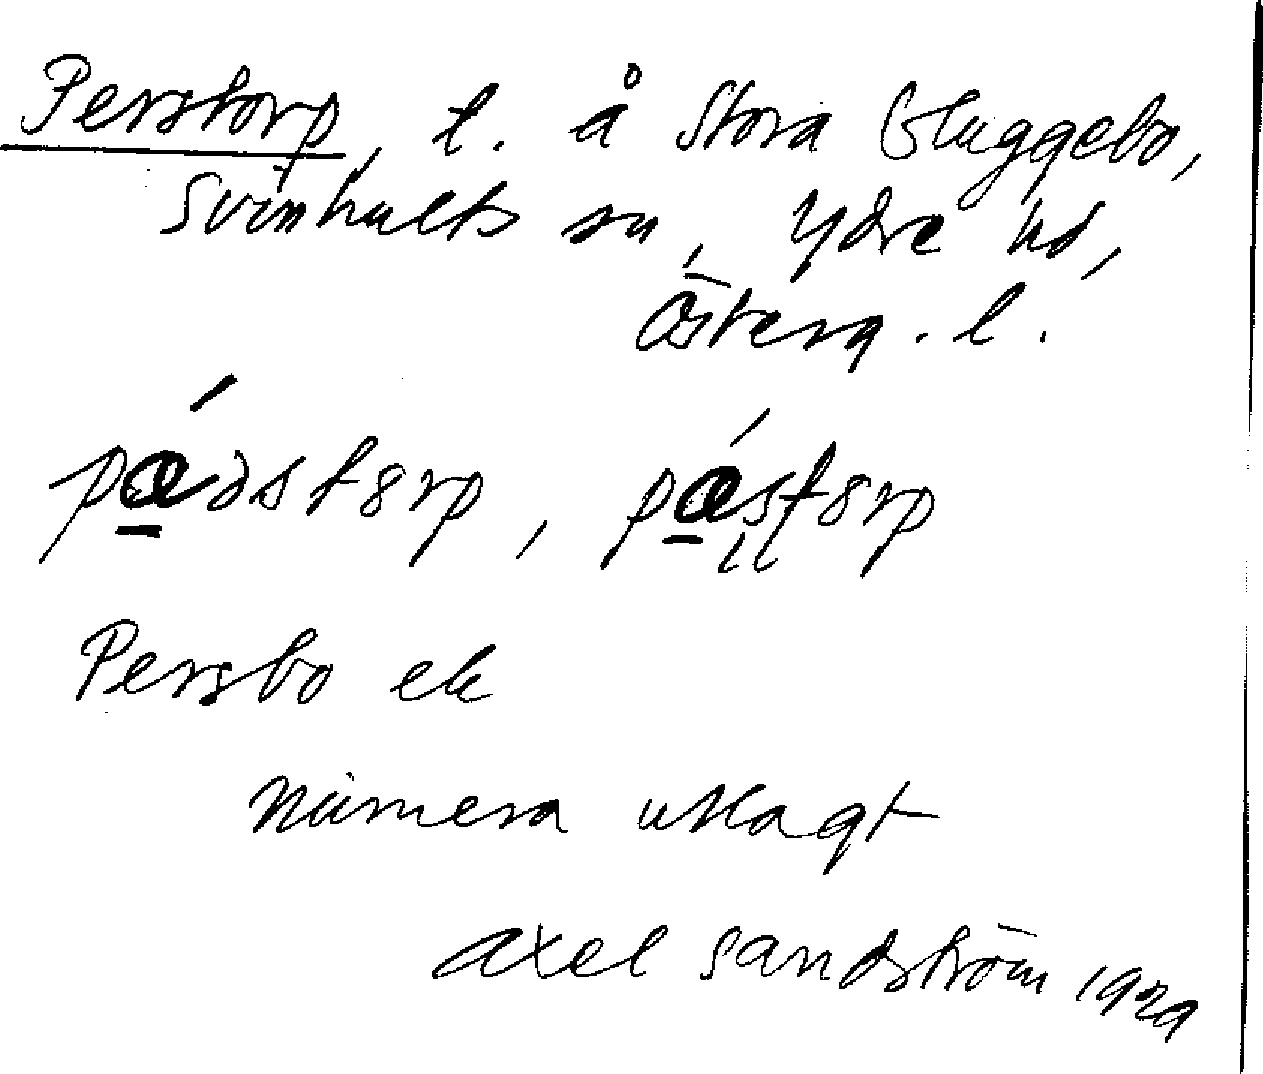 Perstorp, t. å Stora Gluggebo,
Svinhults sn, Ydre hd,
Österg. l.
pǽ̠ɔstɔrp, pǽ̠stɔrp
Persbo ek
Numera utlagt
Axel Sandström 1929